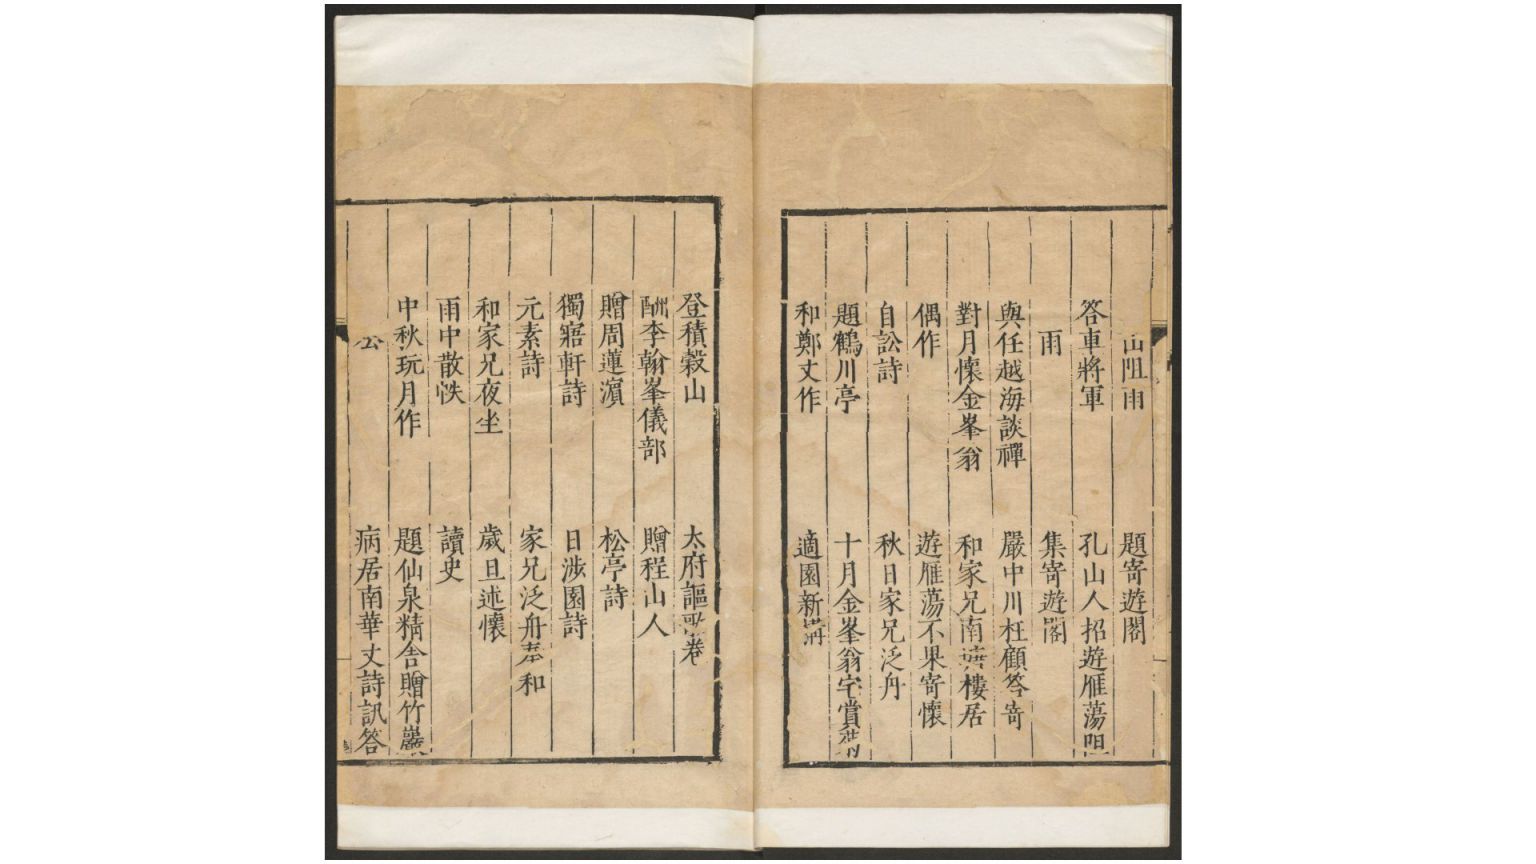 山阻雨
題寄遊閣
答車將軍
孔山人招遊雁蕩阻
雨
集寄遊閣
與任越海談禪
嚴中川枉顧答寄
對月懷金峯翁
和家兄南塘樓居
偶作
遊雁蕩不果寄懷
自訟詩
秋日家兄泛舟
題鶴川亭
十月金峯翁宅賞
和鄭丈作
適園新構
登積穀山
太府謳歌卷
酬李翰峯儀部
贈程山人
贈周蓮濵
松亭詩
獨寤軒詩
日涉園詩
元素詩
家兄泛舟奉和
和家兄夜坐
歲旦述懷
雨中散帙
讀史
中秋玩月作
題仙泉精舍贈竹巖
公
病居南華丈詩訊答